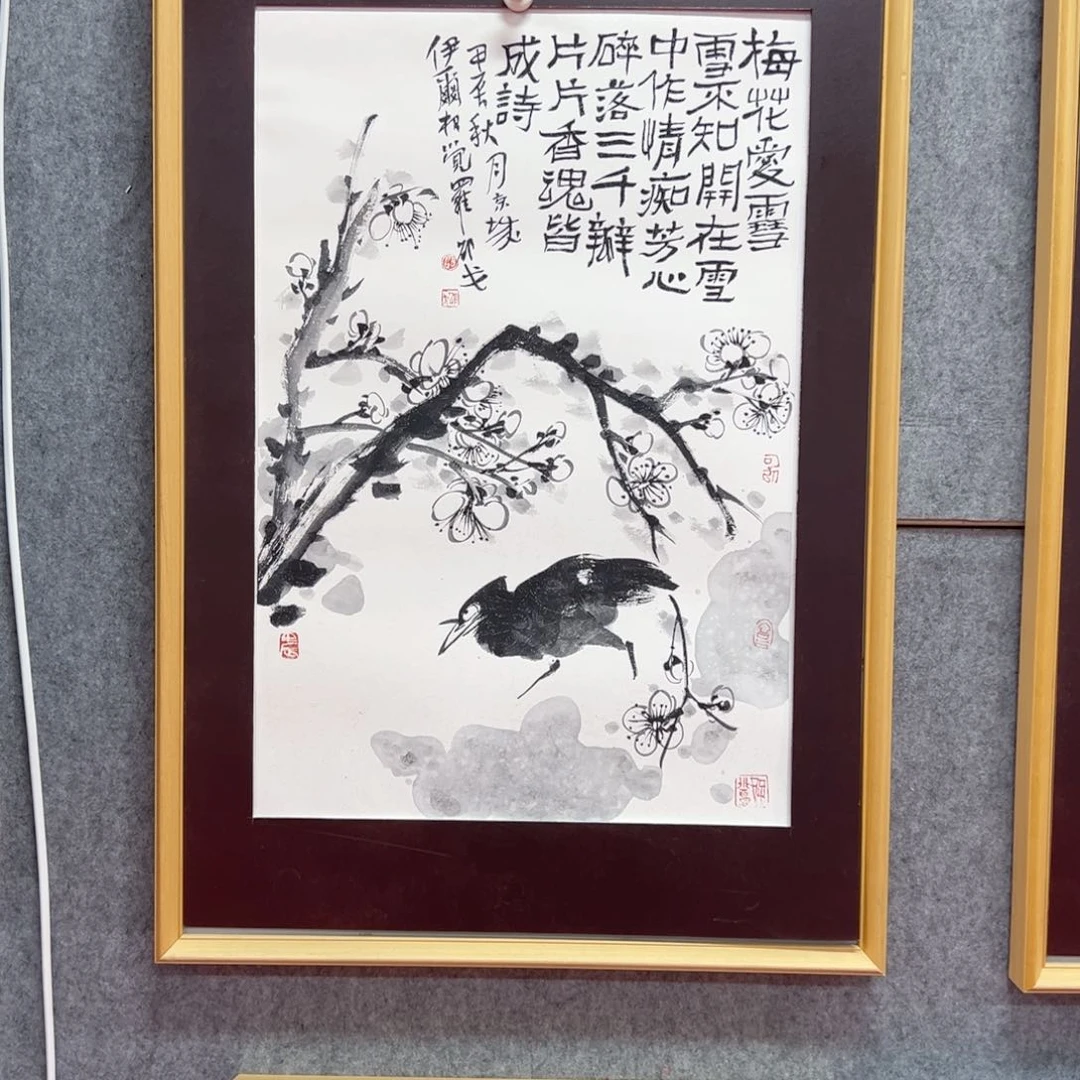 梅花愛雪
雪不知開在雪
中作情痴芳心
碎落三千瓣
片片香魂皆
成詩
甲辰秋月京城
伊爾根覺羅